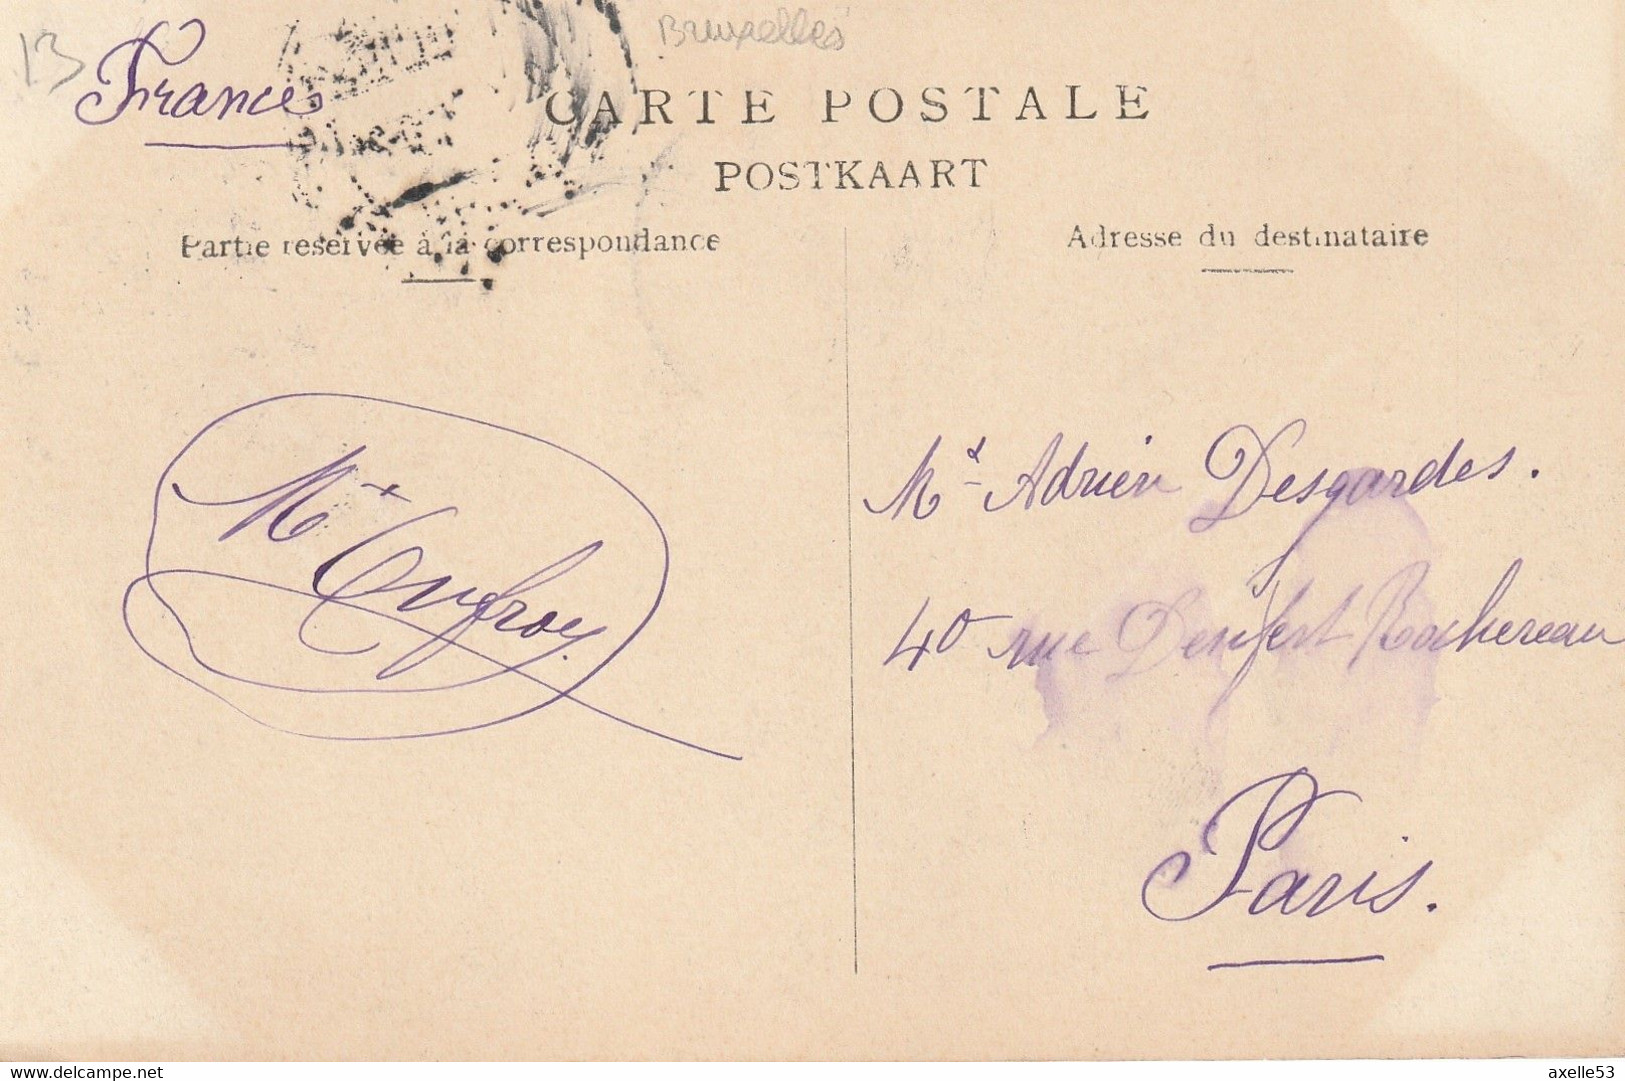 13
France
Bruxelles
CARTE POSTALE
POSTKAART
Partie réservée à la correspondance
Adresse du destinataire
Mr Adrien Desgardes.
40 rue Denfert Rochereau
Paris.
delcampe.net
axelle53